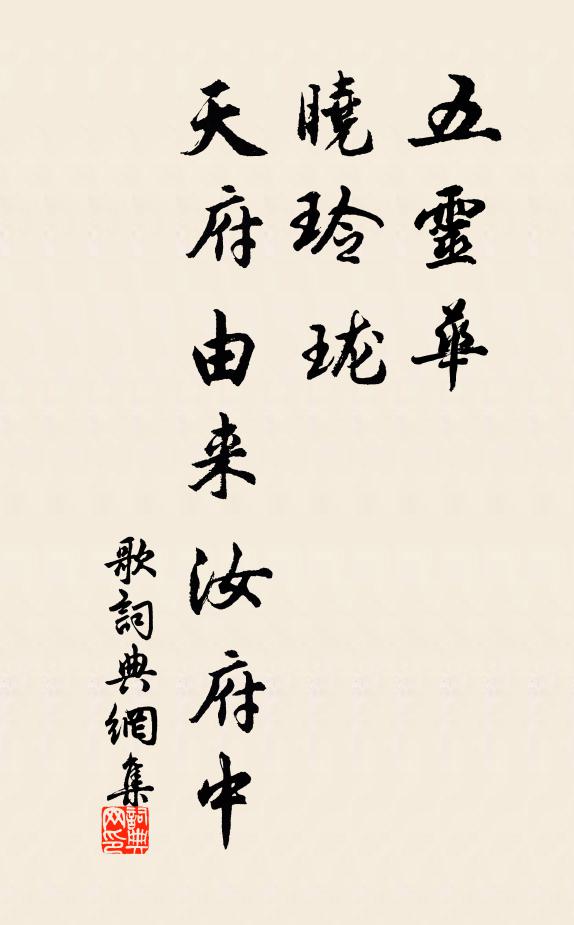 五靈華
曉玲瓏
天府由来汝府中
歌詞典網集
詞典网印